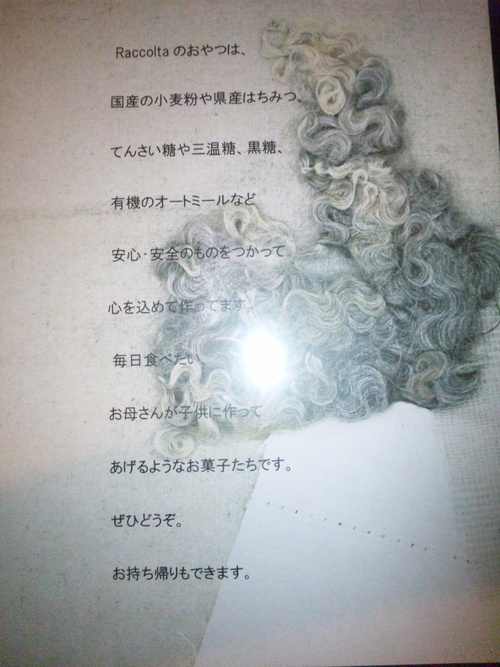 Raccolta のおやつは、
国産の小麦粉や県産はちみつ、
てんさい糖や三温糖、黒糖、
有機のオートミールなど
安心・安全のものをつかって
心を込めて作ってます。
毎日食べたい
お母さんが子供に作って
あげるようなお菓子たちです。
ぜひどうぞ。
お持ち帰りもできます。